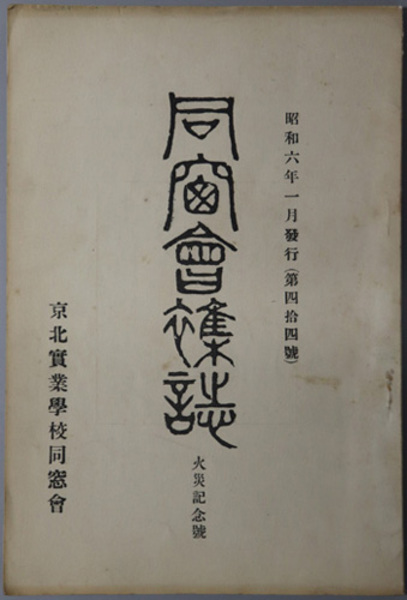 昭和六年一月發行(第四拾四號)
同窗會雜誌
火災記念號
京北實業學校同窓會